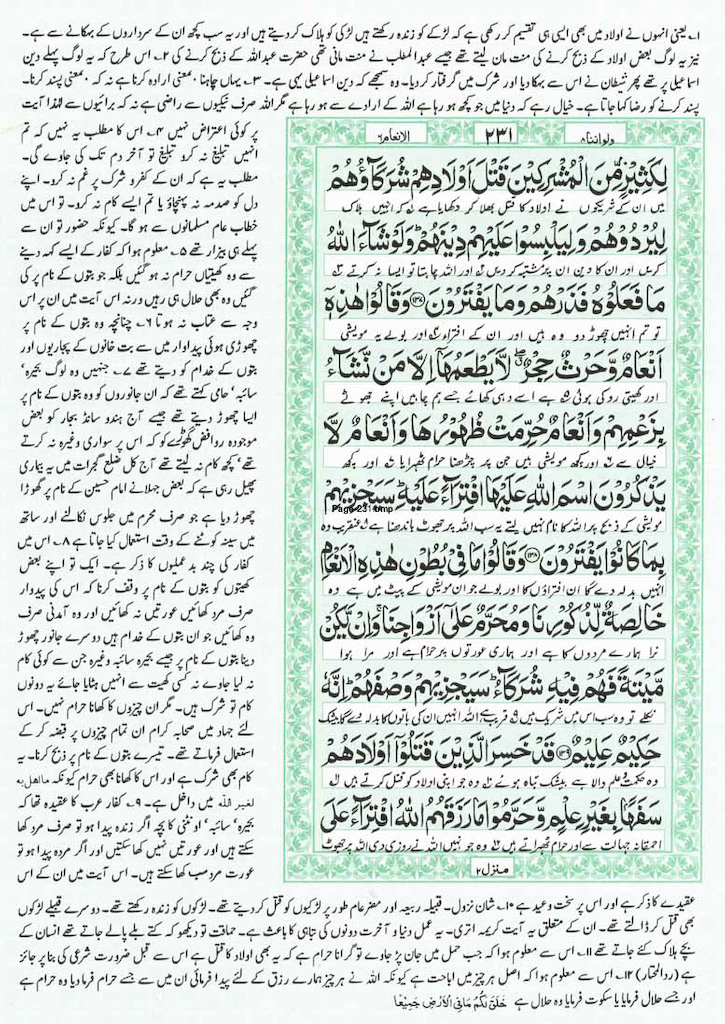 ۱؎ یعنی انہوں نے اولاد میں بھی ایسی ہی تقسیم کر رکھی ہے کہ لڑکے کو زندہ رکھتے ہیں لڑکی کو ہلاک کر دیتے ہیں اور یہ سب کچھ ان کے سرداروں کے بہکانے سے ہے۔
نیز یہ لوگ بعض اولاد کے ذبح کرنے کی منت مان لیتے تھے جیسے عبدالمطلب نے منت مانی تھی حضرت عبداللہ کے ذبح کرنے کی ۲؎ اس طرح کہ یہ لوگ پہلے دین
اسماعیلی پر تھے پھر شیطان نے اس سے بہکا دیا اور شرک میں گرفتار کر دیا۔ وہ سمجھے کہ دین اسماعیلی یہی ہے۔ ۳؎ یہاں چاہنا بمعنی ارادہ کرنا ہے نہ کہ بمعنی پسند کرنا۔
پسند کرنے کو رضا کہا جاتا ہے۔ خیال رہے کہ دنیا میں جو کچھ ہو رہا ہے اللہ کے ارادے سے ہو رہا ہے مگر اللہ صرف نیکیوں سے راضی ہے نہ کہ برائیوں سے لہٰذا آیت
ولو اننا ۸
۲۳۱
الانعام ۶
لِكَثِيْرٍ مِّنَ الْمُشْرِكِيْنَ قَتْلَ اَوْلَادِهِمْ شُرَكَآؤُهُمْ
میں ان کے شریکوں نے اولاد کا قتل بھلا کر دکھایا ہے کہ انہیں ہلاک
لِيُرْدُوْهُمْ وَلِيَلْبِسُوْا عَلَيْهِمْ دِيْنَهُمْ وَلَوْ شَآءَ اللّٰهُ
کریں اور ان کا دین ان پر مشتبہ کر دیں اور اللہ چاہتا تو ایسا نہ کرتے
مَا فَعَلُوْهُ فَذَرْهُمْ وَمَا يَفْتَرُوْنَ ۝۱۳۷ وَقَالُوْا هٰذِهٖٓ
تو تم انہیں چھوڑ دو وہ ہیں اور ان کے افتراء اور بولے یہ مویشی
اَنْعَامٌ وَّحَرْثٌ حِجْرٌ لَّا يَطْعَمُهَآ اِلَّا مَنْ نَّشَآءُ
اور کھیتی روکی ہوئی ہے اسے وہی کھائے جسے ہم چاہیں اپنے جھوٹے
بِزَعْمِهِمْ وَاَنْعَامٌ حُرِّمَتْ ظُهُوْرُهَا وَاَنْعَامٌ لَّا
خیال سے اور کچھ مویشی ہیں جن پر چڑھنا حرام ٹھہرایا اور کچھ
يَذْكُرُوْنَ اسْمَ اللّٰهِ عَلَيْهَا افْتِرَآءً عَلَيْهِ سَيَجْزِيْهِمْ
Page-231.bmp
مویشی کے ذبح پر اللہ کا نام نہیں لیتے یہ سب اللہ پر جھوٹ باندھنا ہے عنقریب وہ
بِمَا كَانُوْا يَفْتَرُوْنَ ۝۱۳۸ وَقَالُوْا مَا فِيْ بُطُوْنِ هٰذِهِ الْاَنْعَامِ
انہیں بدلہ دے گا ان افتراؤں کا اور بولے جو ان مویشی کے پیٹ میں ہے وہ
خَالِصَةٌ لِّذُكُوْرِنَا وَمُحَرَّمٌ عَلٰٓى اَزْوَاجِنَا وَاِنْ يَّكُنْ
نرا ہمارے مردوں کا ہے اور ہماری عورتوں پر حرام ہے اور مرا ہوا
مَّيْتَةً فَهُمْ فِيْهِ شُرَكَآءُ سَيَجْزِيْهِمْ وَصْفَهُمْ اِنَّهٗ
نکلے تو وہ سب اس میں شریک ہیں قریب ہے کہ اللہ انہیں ان کی باتوں کا بدلہ دے گا بیشک
حَكِيْمٌ عَلِيْمٌ ۝۱۳۹ قَدْ خَسِرَ الَّذِيْنَ قَتَلُوْٓا اَوْلَادَهُمْ
وہ حکمت و علم والا ہے بیشک تباہ ہوئے وہ جو اپنی اولاد کو قتل کرتے ہیں
سَفَهًا بِغَيْرِ عِلْمٍ وَّحَرَّمُوْا مَا رَزَقَهُمُ اللّٰهُ افْتِرَآءً عَلَى
احمقانہ جہالت سے اور حرام ٹھہراتے ہیں وہ جو نہیں اللہ نے روزی دی اللہ پر جھوٹ
منزل ۲
پر کوئی اعتراض نہیں ۴؎ اس کا مطلب یہ نہیں کہ تم
انہیں تبلیغ نہ کرو تبلیغ تو آخر دم تک کی جاوے گی۔
مطلب یہ ہے کہ ان کے کفر و شرک پر غم نہ کرو۔ اپنے
دل کو صدمہ نہ پہنچاؤ یا تم ایسے کام نہ کرو۔ تو اس میں
خطاب عام مسلمانوں سے ہو گا۔ کیونکہ حضور تو ان سے
پہلے ہی بیزار تھے ۵؎ معلوم ہوا کہ کفار کے ایسے کہہ دینے
سے وہ کھیتیاں حرام نہ ہو گئیں بلکہ جو بتوں کے نام پر کی
گئیں وہ بھی حلال ہی رہیں ورنہ اس آیت میں ان پر اس
وجہ سے عتاب نہ ہوتا ۶؎ چنانچہ وہ بتوں کے نام پر
چھوڑی ہوئی پیداوار میں سے بت خانوں کے پجاریوں اور
بتوں کے خدام کو دیتے تھے ۷؎ جنہیں وہ لوگ بحیرہ،
سائبہ، حامی کہتے تھے کہ ان جانوروں کو وہ بتوں کے نام پر
ایسا چھوڑ دیتے تھے جیسے آج ہندو سانڈ بجار کو بعض
موجودہ روافض گھوڑے کو کہ اس پر سواری وغیرہ نہ کرتے
تھے، کچھ کام نہ لیتے تھے آج کل ضلع گجرات میں یہ بیماری
پھیل رہی ہے کہ بعض جہلا نے امام حسین کے نام پر گھوڑا
چھوڑ دیا ہے جو صرف محرم میں جلوس نکالنے اور ساتھ
میں سینہ کوٹنے کے وقت استعمال کیا جاتا ہے ۸؎ اس میں
کفار کی چند بد عملیوں کا ذکر ہے۔ ایک تو اپنے بعض
کھیتوں کو بتوں کے نام پر وقف کرنا کہ اس کی پیدوار
صرف مرد کھائیں عورتیں نہ کھائیں اور وہ آمدنی صرف
وہ کھائیں جو ان بتوں کے خدام ہیں دوسرے جانور چھوڑ
دینا بتوں کے نام پر جیسے بحیرہ سائبہ وغیرہ جن سے کوئی کام
نہ لیا جاوے نہ کسی کھیت سے انہیں ہٹایا جائے یہ دونوں
کام تو شرک ہیں۔ مگر ان چیزوں کا کھانا حرام نہیں۔ اس
لئے جہاد میں صحابہ کرام ان تمام چیزوں پر قبضہ کر کے
استعمال فرماتے تھے۔ تیسرے بتوں کے نام پر ذبح کرنا۔ یہ
کام بھی شرک ہے اور اس کا کھانا بھی حرام کیونکہ مااھل بہ
لغیر اللہ میں داخل ہے۔ ۹؎ کفار عرب کا عقیدہ تھا کہ
بحیرہ، سائبہ، اونٹنی کا بچہ اگر زندہ پیدا ہو تو صرف مرد کھا
سکتے ہیں اور عورتیں نہیں کھا سکتیں اور اگر مردہ پیدا ہو تو
عورت مرد سب کھا سکتے ہیں۔ اس آیت میں ان کے اس
عقیدے کا ذکر ہے اور اس پر سخت وعید ہے ۱۰؎ شان نزول۔ قبیلہ ربیعہ اور مضر عام طور پر لڑکیوں کو قتل کر دیتے تھے۔ لڑکوں کو زندہ رکھتے تھے۔ دوسرے قبیلے لڑکوں
بھی قتل کر ڈالتے تھے۔ ان کے متعلق یہ آیت کریمہ اتری۔ یہ عمل دنیا و آخرت دونوں کی تباہی کا باعث ہے۔ حماقت تو دیکھو کہ کتے بلے پالے جاتے تھے انسان کے
بچے ہلاک کئے جاتے تھے ۱۱؎ اس سے معلوم ہوا کہ جب حمل میں جان پڑ جاوے تو گرانا حرام ہے کہ یہ بھی اولاد کا قتل ہے اس سے قبل ضرورت شرعی کی بنا پر جائز
ہے (ردالمحتار) ۱۲؎ اس سے معلوم ہوا کہ اصل ہر چیز میں اباحت ہے کیونکہ اللہ نے ہر چیز ہمارے رزق کے لئے پیدا فرمائی ان میں سے جسے حرام فرما دیا وہ حرام ہے
اور جسے حلال فرمایا یا سکوت فرمایا وہ حلال ہے خَلَقَ لَكُمْ مَّا فِى الْاَرْضِ جَمِيْعًا